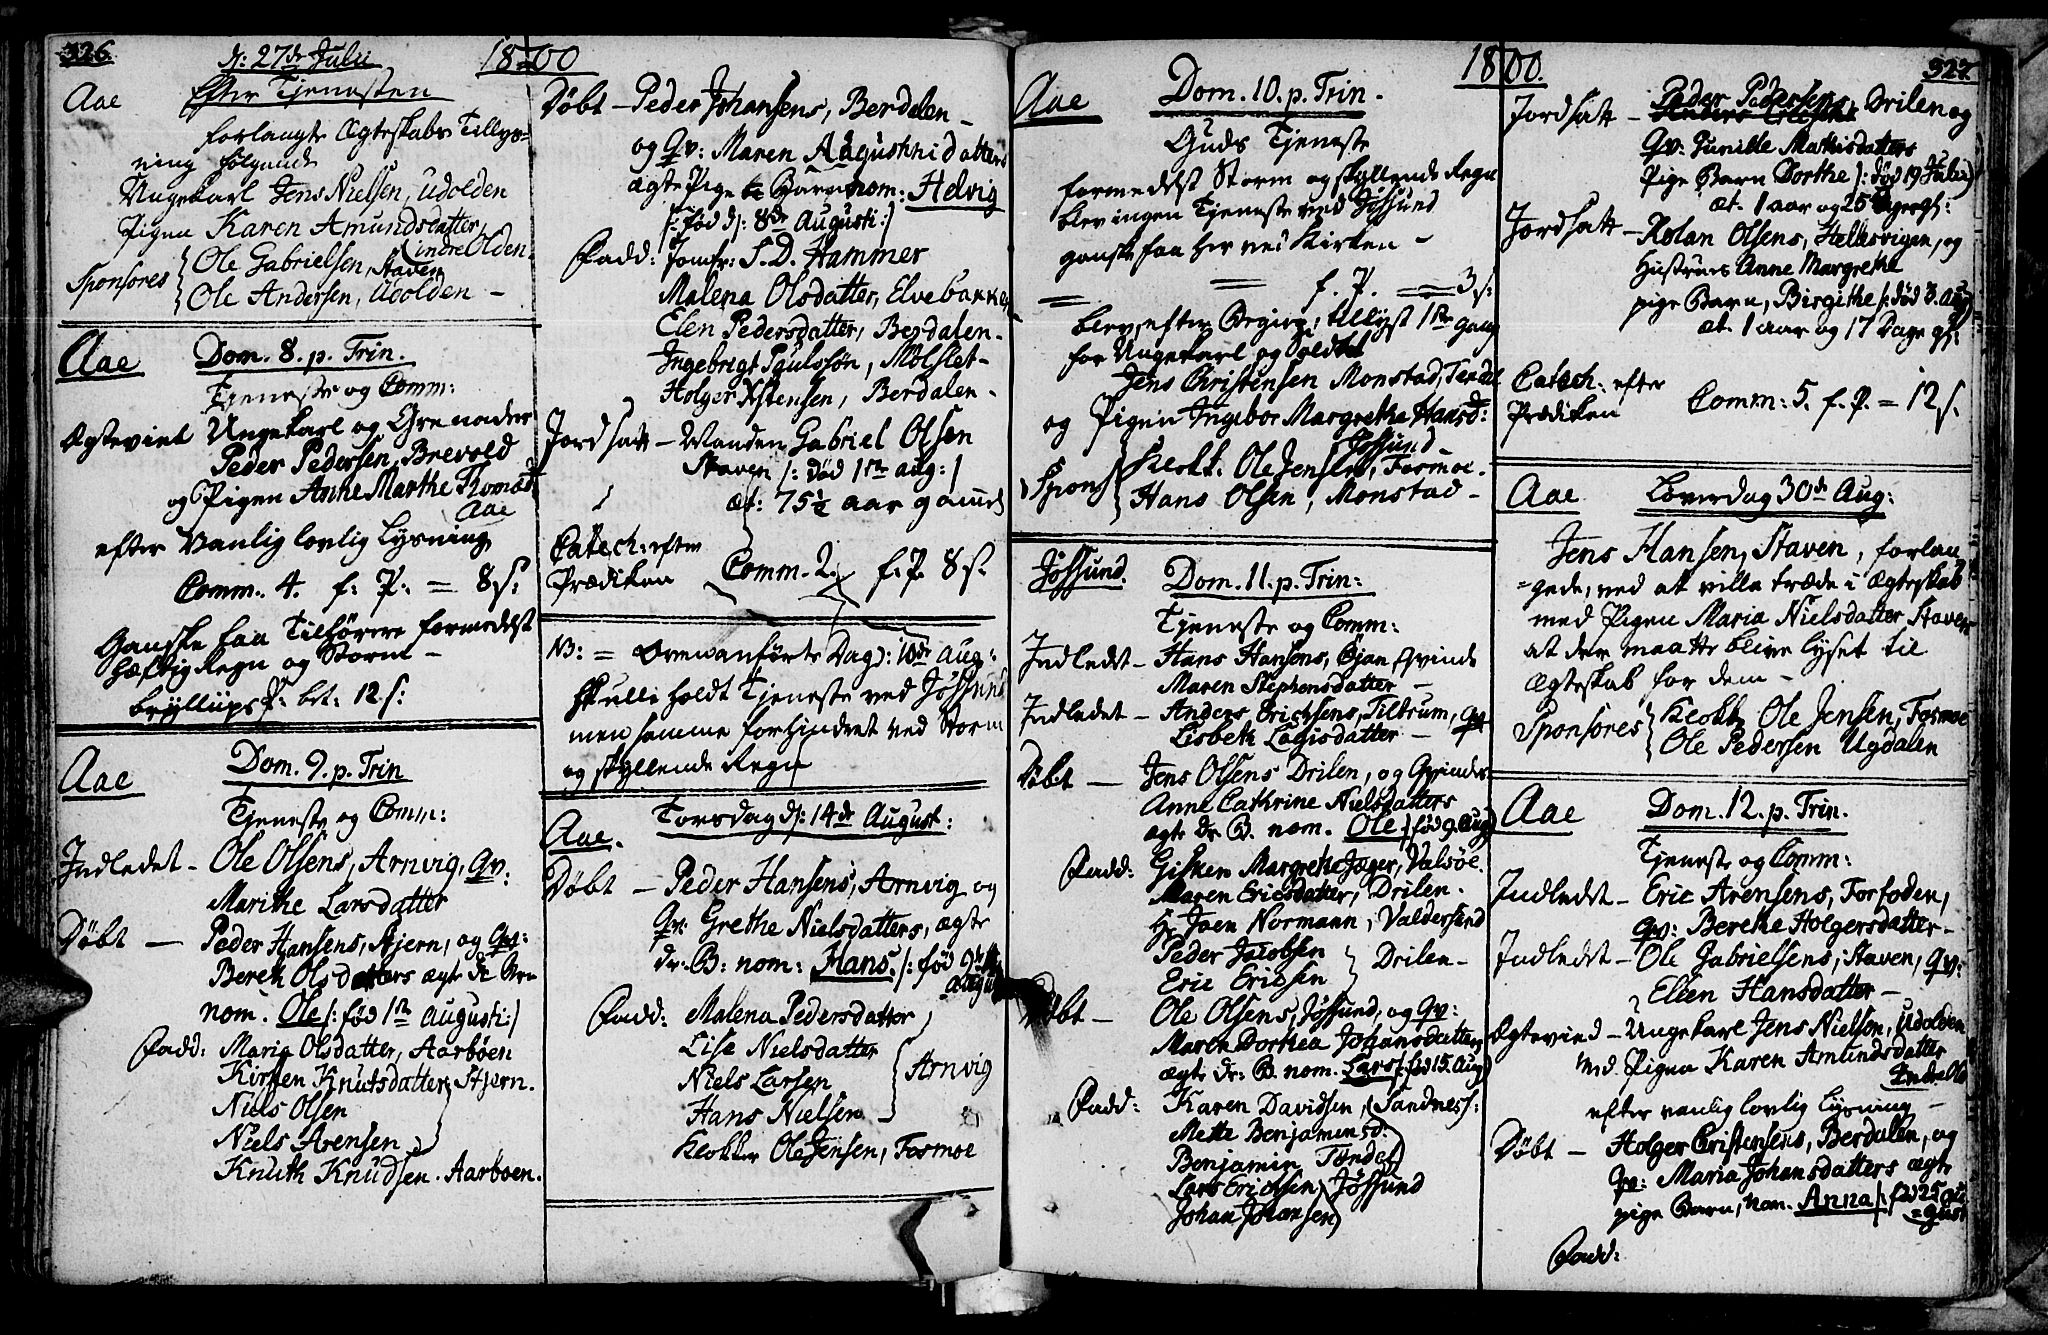 326.
d: 27de Julii
1800
Aae
Efter Tjenesten
forlangte Ægteskabs Tillys-
ning følgende
Ungekarl Jens Nielsen, Udolden
Pigen Karen Amundsdatter,
indre Olden.
Sponsores Ole Gabrielsen, Staven
Ole Andersen, Udolden –
Aae
Dom. 8. p. Trin.
Tjeneste og Comm:
Ægteviet Ungekarl og Grenader
Peder Pedersen, Brevold
og Pigen Anne Marthe Thomasd
Aae
efter Vanlig lovlig Lysning
Comm. 4. f: P: = 8 s:
Ganske faa Tilhørere formedelst
hæftig Regn og Storm –
bryllups bet: 12 s:
Aae
Dom. 9. p. Trin
Tjeneste og Comm:
Indledet – Ole Olsens, Arnvig, Qv:
Marithe Larsdatter
Døbt – Peder Hansens, Stjern, og Qv:
Bereth Olsdatters ægte de Brn
nom. Ole /: fød 1ste Augusti :/
Fadd: Maria Olsdatter, Aarbøen
Kirsten Knutsdatter, Stjern.
Niels Olsen
Niels Arensen
Knuth Knudsen. Aarboen.
Døbt – Peder Johansens, Berdalen –
og Qv: Maren Augustinidatters
ægte Pige Barn nom: Helvig
/: fød d: 8de Augusti :/
Fadd: Jomfr: S. D. Hammer
Malena Olsdatter, Elvebakken
Elen Pedersdatter, Berdalen.
Ingebrigt Paulsøn, Mølslet –
Holger Xstensen, Berdalen –
Jordsatt – Manden Gabriel Olsen
Staven /: død 1ste aug: /
æt: 75½ aar gammel
Catech: efter
Prædiken
Comm. 2. f. P. 8 s.
NB: = Ovenanførte Dag d: 10de Aug:
skulle holdt Tjeneste ved Jøssund
men samme forhindret ved Storm
og skyllende Regn
Aae.
Torsdag d: 14de August:
Døbt – Peder Hansens, Arnvig og
Qv: Grethe Nielsdatters, ægte
dr: B: nom: Hans. /: fød 9de
august
Fadd: Malena Pedersdatter
Lise Nielsdatter
Niels Larsen
Arnvig
Hans Nielsen
Klokker Ole Jensen, Fosmoe
327.
1800.
Aae
Dom. 10. p. Trin.
Guds Tjeneste
formedelst Storm og skyllende Regn
blev ingen Tjeneste ved Jøssund
ganske faa her ved Kirken –
= = f. P. = 3 s:
blev, efter Begier, tillyst 1ste gang
for Ungekarl og Soldat
Jens Christensen Monstad,
og Pigen Ingebor Margrethe Hansd:
Jøssund
Spons Klokk. Ole Jensen, Fosmoe.
Hans Olsen, Monstad –
Jøssund.
Dom. 11. p. Trin:
Tjeneste og Comm:
Indledet – Hans Hansens, Qvinde
Maren Stephensdatter –
Indledet – Anders Erichsens, Tiltrum, Qv
Lisbeth Lagisdatter –
Døbt – Jens Olsens Drilen, og Qvindes
Anne Cathrine Nielsdatters
ægte dr. B. nom. Ole /: fød 9. Aug
Fadd: Gisken Margrethe Jæger, Valsøe.
Maren Ericsdatter, Drilen.
Hr Joen Normann, Valdersund
Peder Jacobsen
Drilen –
Eric Ericsen
Døbt – Ole Olsens, Jøssund, og Qv:
Maren Dorthea Johansdatters
ægte dr: B. nom. Lars /: fød 15. Aug
Fadd: Karen Davidsen, Sandness:
Mette Benjaminsd:
Benjamin Tønder
Lars Erichsen
Jøssund
Johan Johansen
Jordsatt – Peder Pedersens, Drilen og
Qv: Gunille Mathisdatters
Pige Barn Dorthe /: død 19 Julii
æt. 1 aar og 25 Uger gl:
Jordsatt – Rolan Olsens, Helkevigen, og
Hustrues Anne Margrethe
pige Barn, Birgithe /: død 3. Aug
æt. 1 aar og 17 Dage gl:
Catech: efter
Prædiken
Comm: 5. f. P. = 12 s.
Aae
Løverdag 30de Aug:
Jens Hansen, Staven, forlan
=gede, ved at ville træde i Ægteskab
med Pigen Maria Nielsdatter Staven
at der maatte blive lyset til
Ægteskab for dem –
Sponsores Klokk Ole Jensen, Fosmoe
Ole Pedersen Ugdalen
Aae
Dom. 12. p. Trin.
Tjeneste og Comm:
Indledet – Eric Arensens, Forfoden,
Qv: Berethe Holgersdatter –
Indledet – Ole Gabrielsens, Staven, Qv:
Elien Hansdatter –
Ægtevied – Ungekarl Jens Nielsen, Udolden
md. Pigen Karen Amundsdatter
Indre Old
efter vanlig lovlig lysning –
Døbt – Holger Cristensens, Berdalen, og
Qv: Maria Johansdatters ægte
pige Barn, nom. Anna /: fød 25 au
=gust
Fadd: